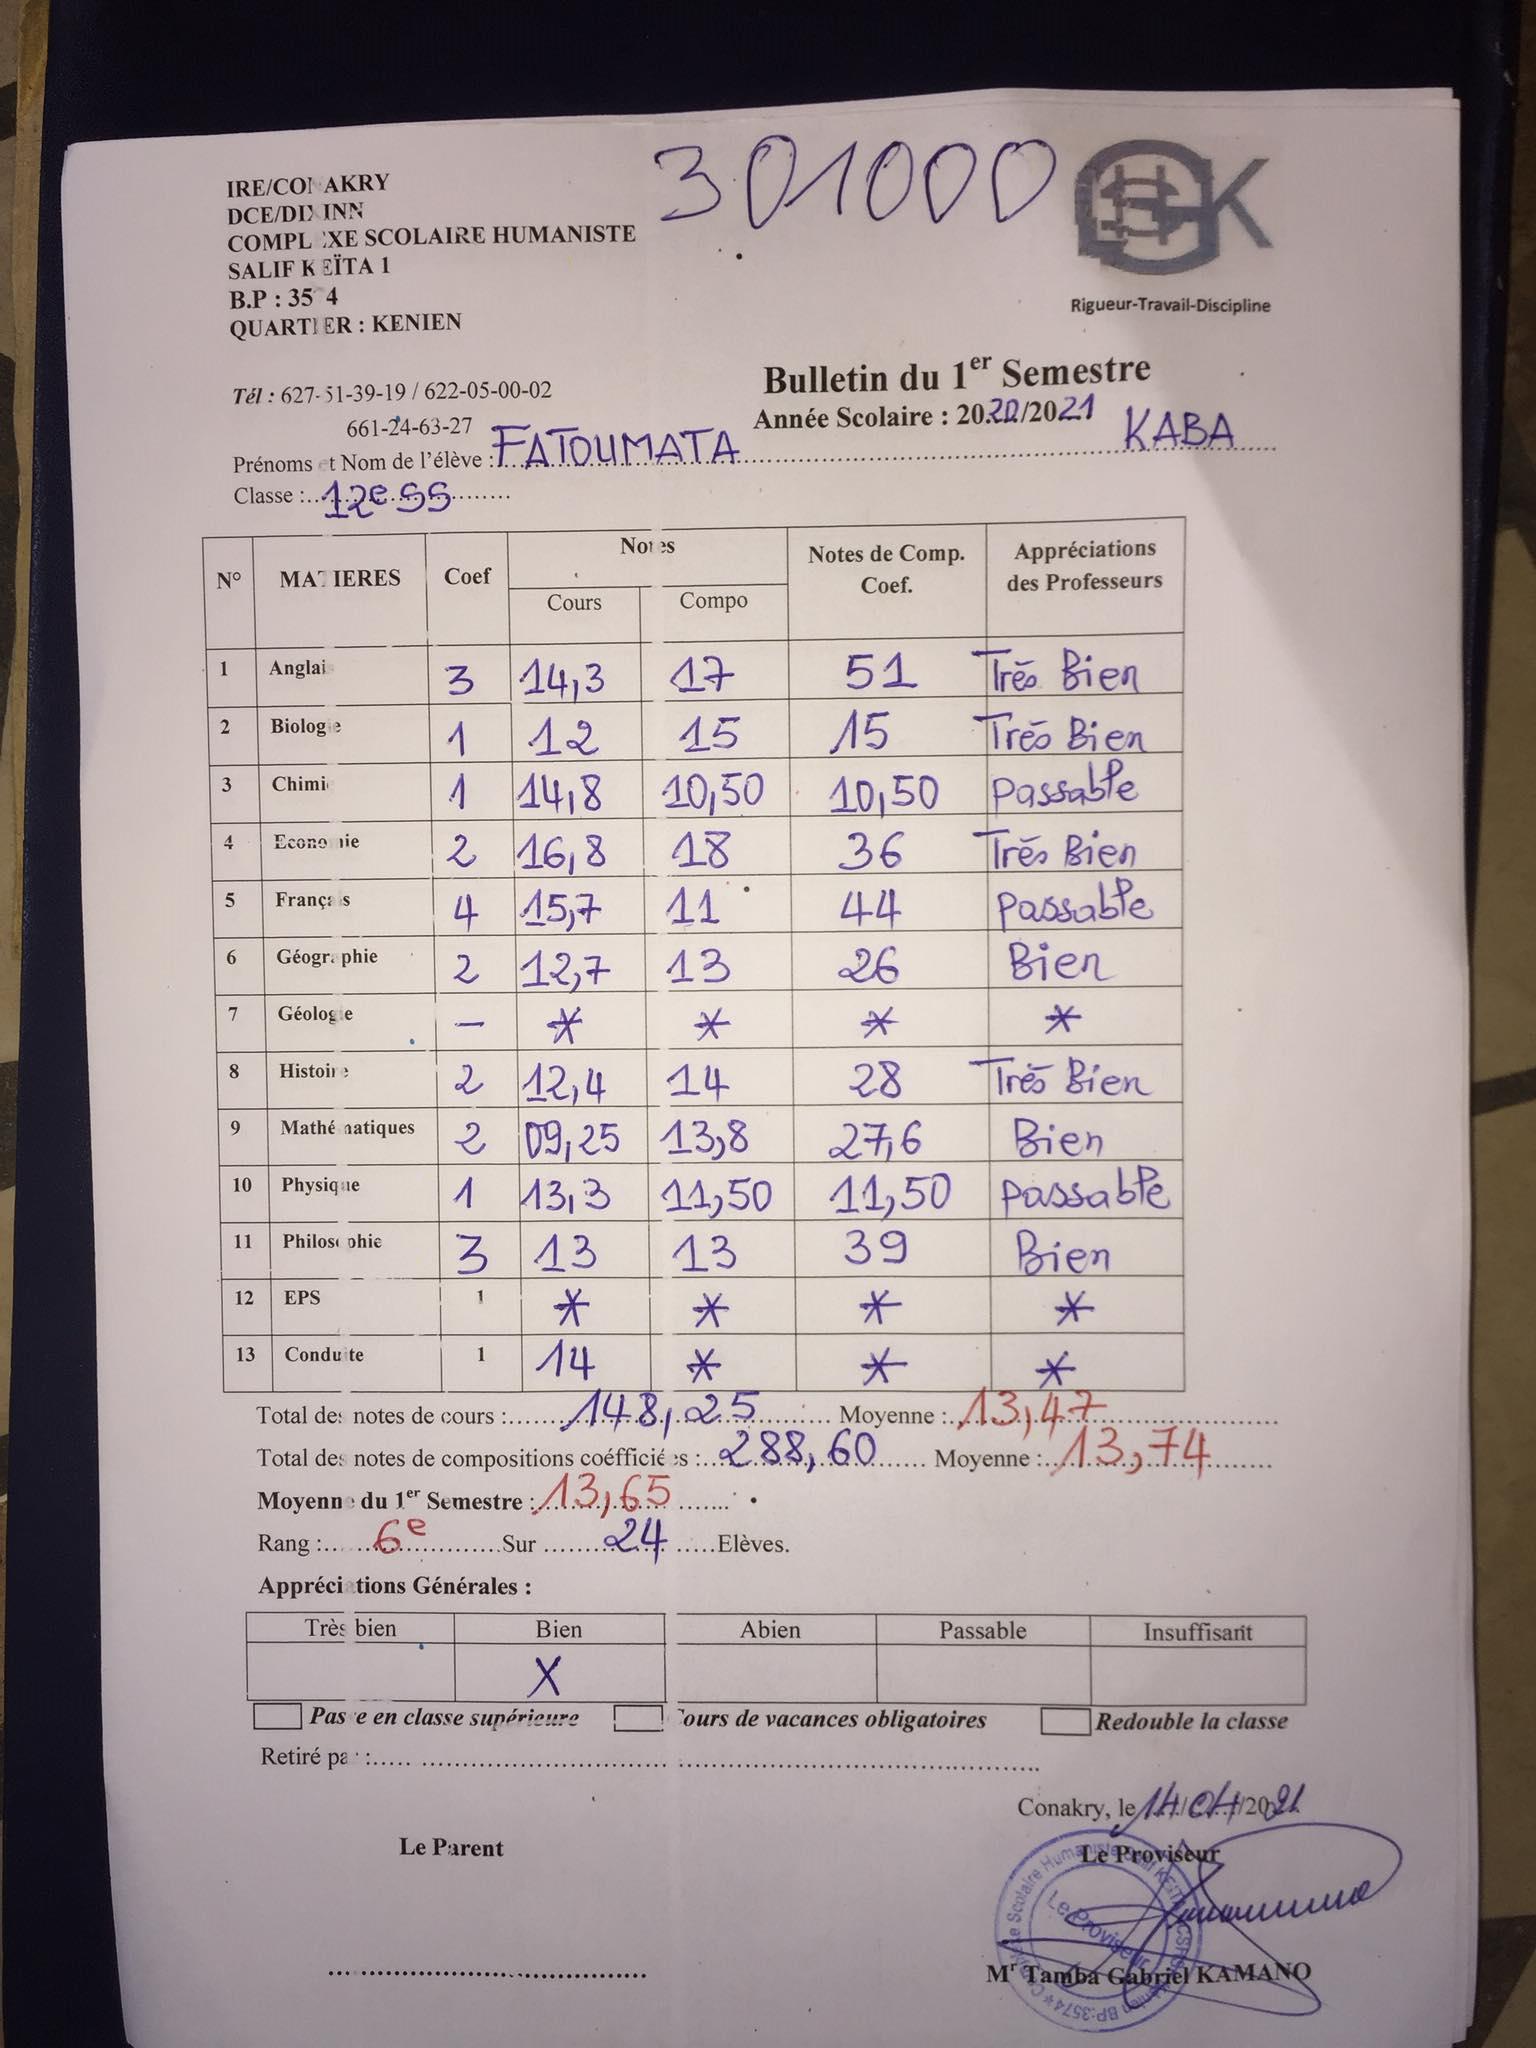 301000
IRE/CONAKRY
DCE/DIXINN
COMPLEXE SCOLAIRE HUMANISTE
SALIF KEÏTA 1
B.P : 3574
QUARTIER : KENIEN
Rigueur-Travail-Discipline
Bulletin du 1er Semestre
Tél : 627-51-39-19 / 622-05-00-02
Année Scolaire : 2020/2021
661-24-63-27
Prénoms et Nom de l'élève : FATOUMATA KABA
Classe : 12e SS
N° MATIERES Coef Notes Notes de Comp. Coef. Appréciations des Professeurs
Cours Compo
1 Anglais 3 14,3 17 51 Très Bien
2 Biologie 1 12 15 15 Très Bien
3 Chimie 1 14,8 10,50 10,50 Passable
4 Economie 2 16,8 18 36 Très Bien
5 Français 4 15,7 11 44 Passable
6 Géographie 2 12,7 13 26 Bien
7 Géologie — * * * *
8 Histoire 2 12,4 14 28 Très Bien
9 Mathématiques 2 09,25 13,8 27,6 Bien
10 Physique 1 13,3 11,50 11,50 Passable
11 Philosophie 3 13 13 39 Bien
12 EPS 1 * * * *
13 Conduite 1 14 * * *
Total des notes de cours : 148,25 Moyenne : 13,47
Total des notes de compositions coéfficiées : 288,60 Moyenne : 13,74
Moyenne du 1er Semestre : 13,65
Rang : 6e Sur 24 Elèves.
Appréciations Générales :
Très bien Bien Abien Passable Insuffisant
X
Passe en classe supérieure Cours de vacances obligatoires Redouble la classe
Retiré par :
Conakry, le 14/04/2021
Le Parent Le Proviseur
Le Proviseur
Mr Tamba Gabriel KAMANO